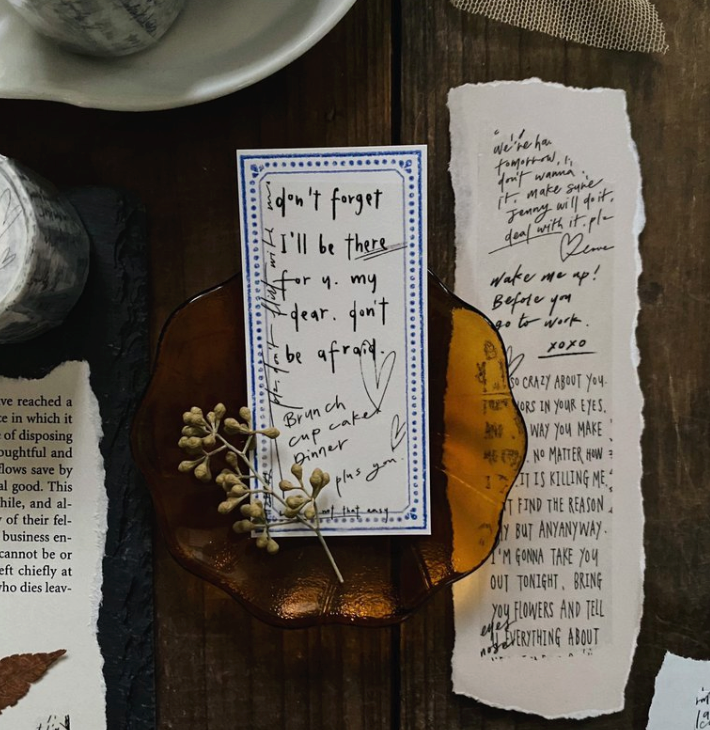 don't forget
I'll be there
for u. my
dear. don't
be afraid.
Brunch
cup cake
Dinner
plus you.
not that easy
we're ha
tomorrow,
don't wanna
it. make sure
Jenny will do it.
deal with it. ple
wake me up!
Before you
go to work.
xoxo
SO CRAZY ABOUT YOU.
ORS IN YOUR EYES.
WAY YOU MAKE
NO MATTER HOW
IT IS KILLING ME
T FIND THE REASON
Y BUT ANYANYWAY.
I'M GONNA TAKE YOU
OUT TONIGHT, BRING
YOU FLOWERS AND TELL
EVERYTHING ABOUT
eyes
nose
ve reached a
te in which it
e of disposing
oughtful and
flows save by
al good. This
hile, and al-
y of their fel-
business en-
cannot be or
eft chiefly at
who dies leav-